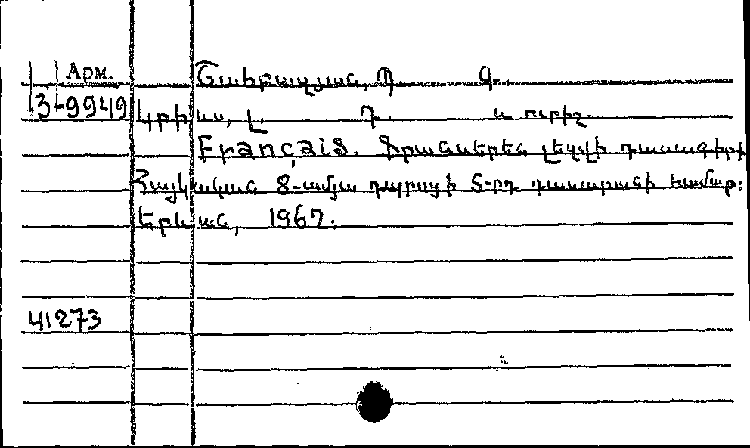 Арм. Շահբազյան, Պ. Գ.
3-9949 Կրիկյան, Լ. Դ. և ուրիշ.
Français. Ֆրանսերեն լեզվի դասագիրք
Հայկական 8-ամյա դպրոցի 5-րդ դասարանի համար:
Երևան, 1967.
41273